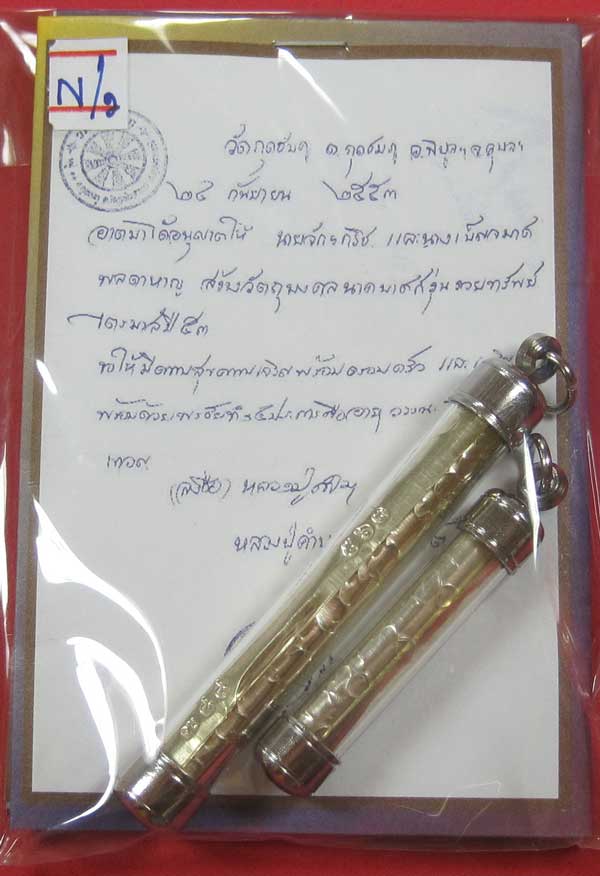 น/๑
วัดกุดชมภู ต.กุดชมภู อ.พิบูลฯ จ.อุบลฯ
๒๔ กันยายน ๒๕๕๓
อาตมาได้อนุญาตให้ นายจักรกริช และนางเบ็ญจมาศ
พลดาหาญ สร้างวัตถุมงคล รุ่นรวยทรัพย์
ไตรมาสปี ๕๓
ขอให้มีความสุขความเจริญพร้อมครอบครัว และ
พร้อมด้วยพรชัยทั้ง ๔ ประการคืออายุ วรรณะ
เทอญ
(ลงชื่อ) หลวงปู่คำบุ
หลวงปู่คำบ